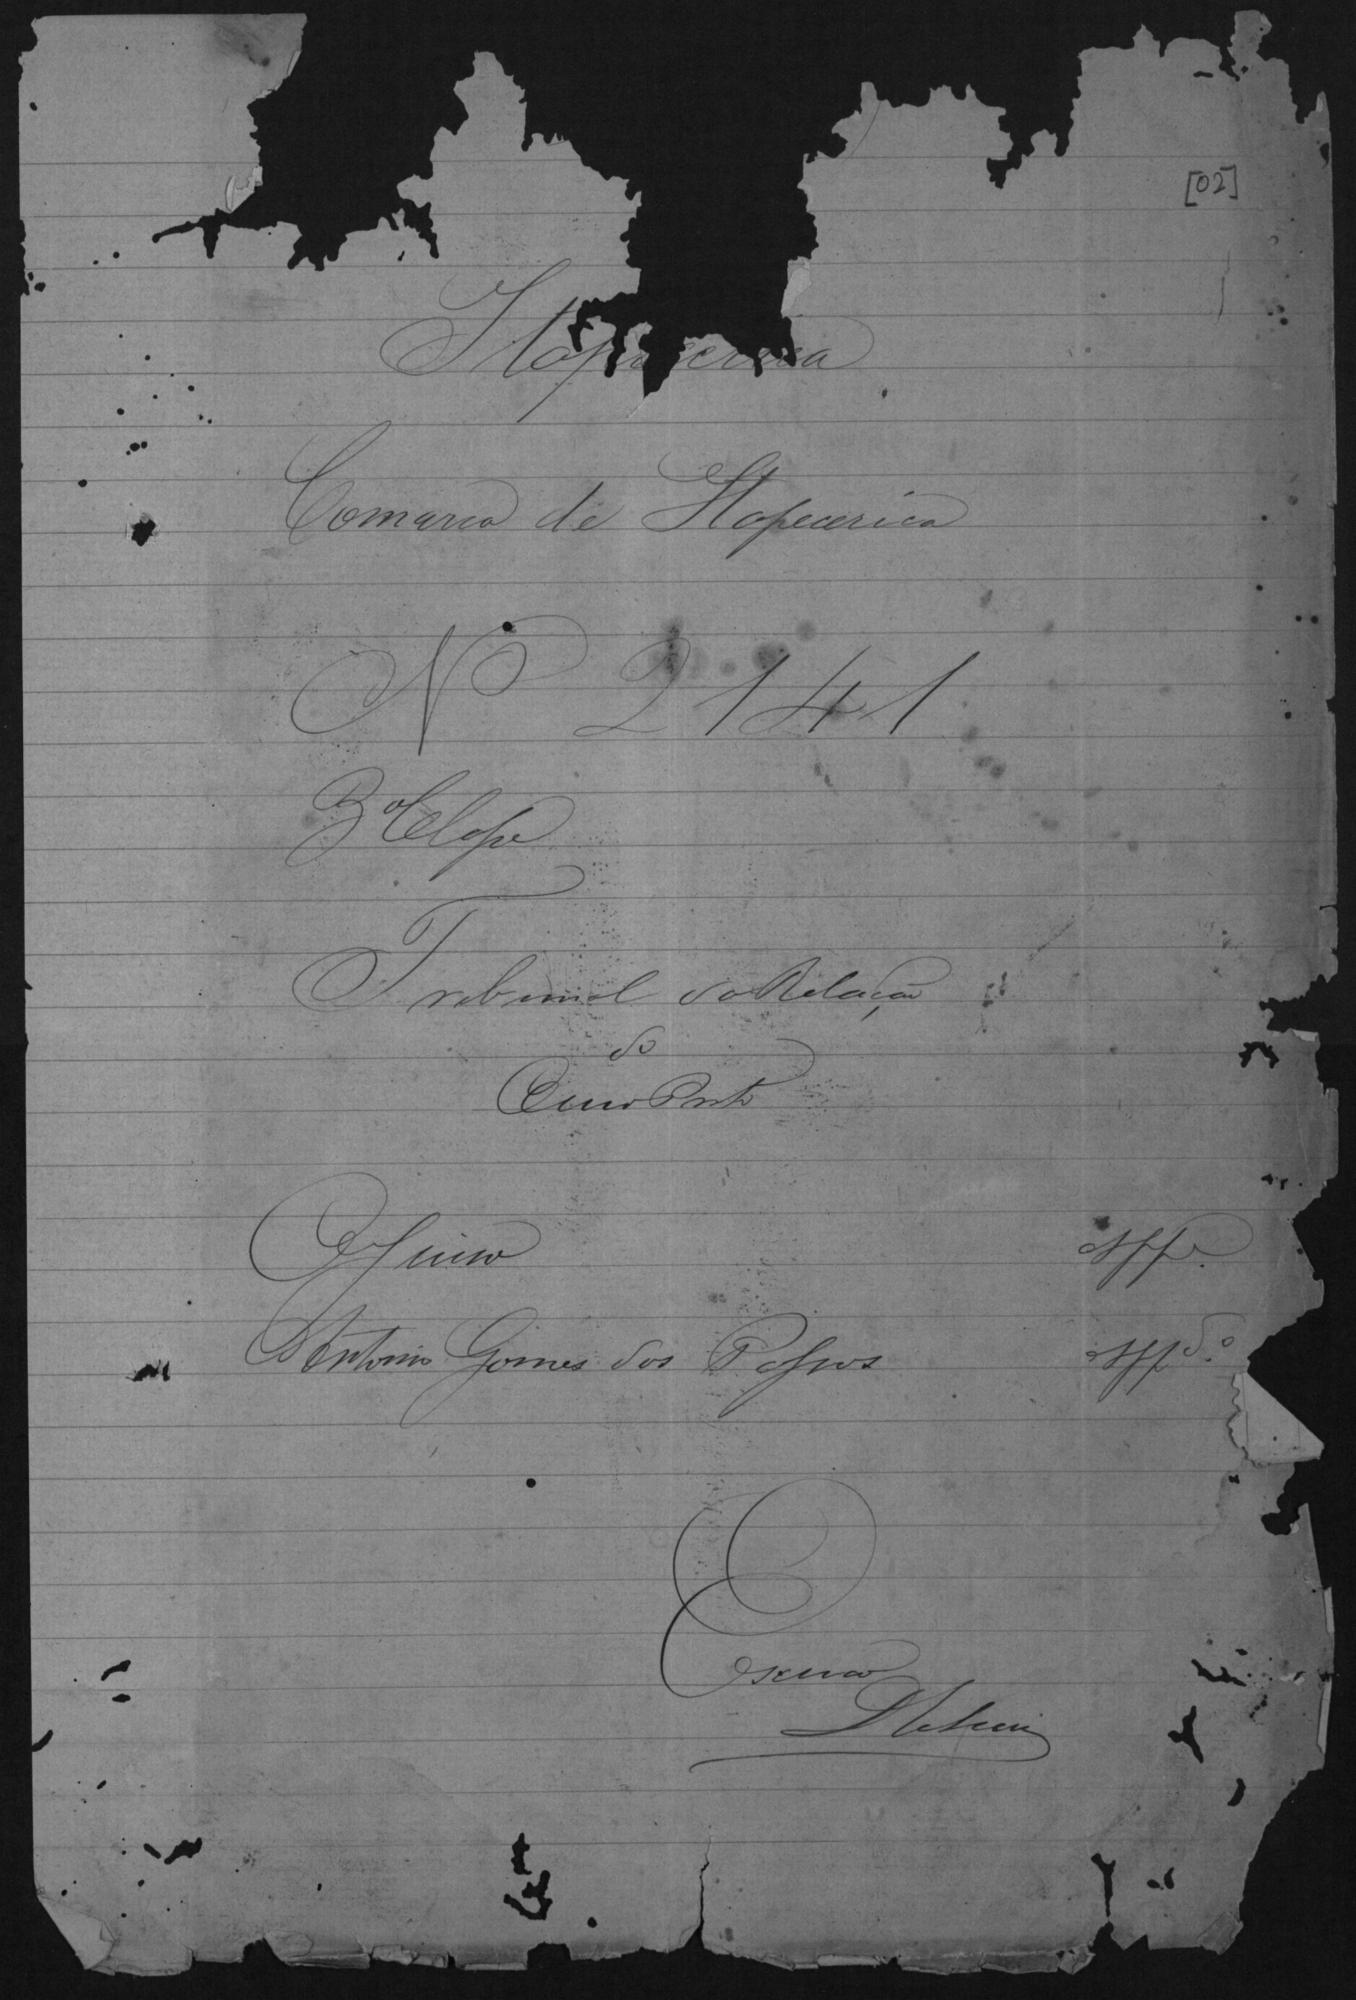 [02]
Itapecerica
Comarca de Itapecerica
Nº 2141
Tribunal da Relação
de
Ouro Preto
O Juiso App.e
Antonio Gomes dos Passos App.do
Escrivão